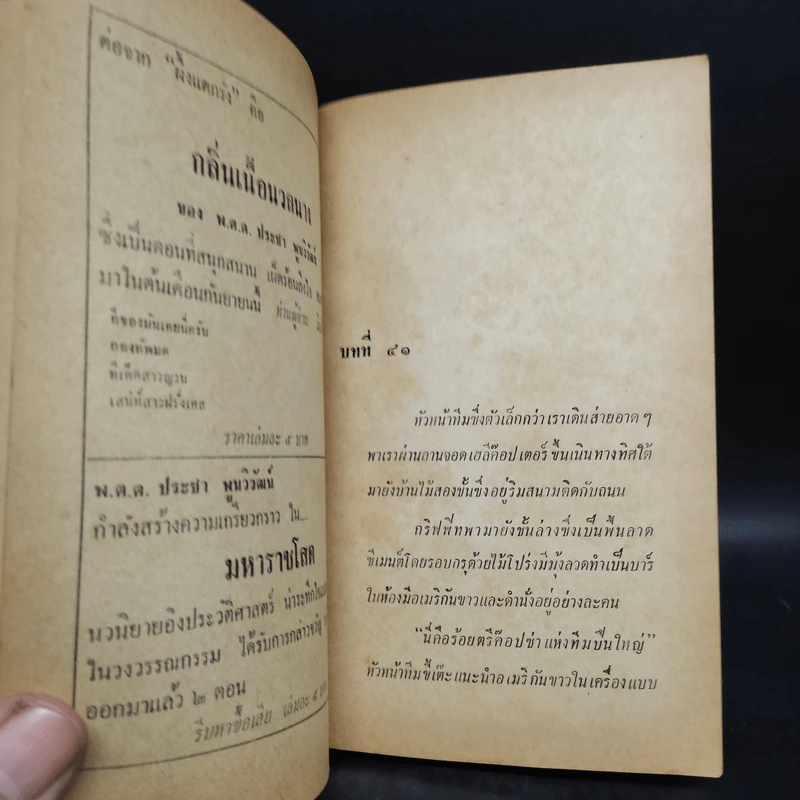 ต่อจาก "ผึ้งแตกรัง" คือ
กลิ่นเนื้อนวลนาง
ของ พ.ต.ต. ประชา พูนวิวัฒน์
ซึ่งเป็นตอนที่สนุกสนาน เผ็ดร้อนถึงใจ
มาในต้นเดือนกันยายนนี้ ท่านผู้อ่าน
ก็ของมันเคยนี่ครับ
กองทัพมด
ทีเด็ดสาวญวน
เสน่ห์สาวฝรั่งเศส
ราคาเล่มละ ๕ บาท
พ.ต.ต. ประชา พูนวิวัฒน์
กำลังสร้างความเกรียวกราว ใน
มหาราชโสด
นวนิยายอิงประวัติศาสตร์ น่าระทึกใจ
ในวงวรรณกรรม ได้รับการกล่าวขวัญ
ออกมาแล้ว ๒ ตอน
รีบหาซื้อเสีย เล่มละ ๕ บาท
บทที่ ๔๑
หัวหน้าทีมซึ่งตัวเล็กกว่าเราเดินส่ายอาด ๆ
พาเราผ่านลานจอดเฮลิค๊อปเตอร์ ขึ้นเนินทางทิศใต้
มายังบ้านไม้สองชั้นซึ่งอยู่ริมสนามติดกับถนน
กริฟฟี่ทพามายังชั้นล่างซึ่งเป็นพื้นลาด
ซีเมนต์โดยรอบกรุด้วยไม้โปร่งมีมุ้งลวดทำเป็นบาร์
ในห้องมีอเมริกันขาวและดำนั่งอยู่อย่างละคน
"นี่คือร้อยตรีค๊อปข่า แห่งทีมปืนใหญ่"
หัวหน้าทีมขี้เต๊ะแนะนำอเมริกันขาวในเครื่องแบบ